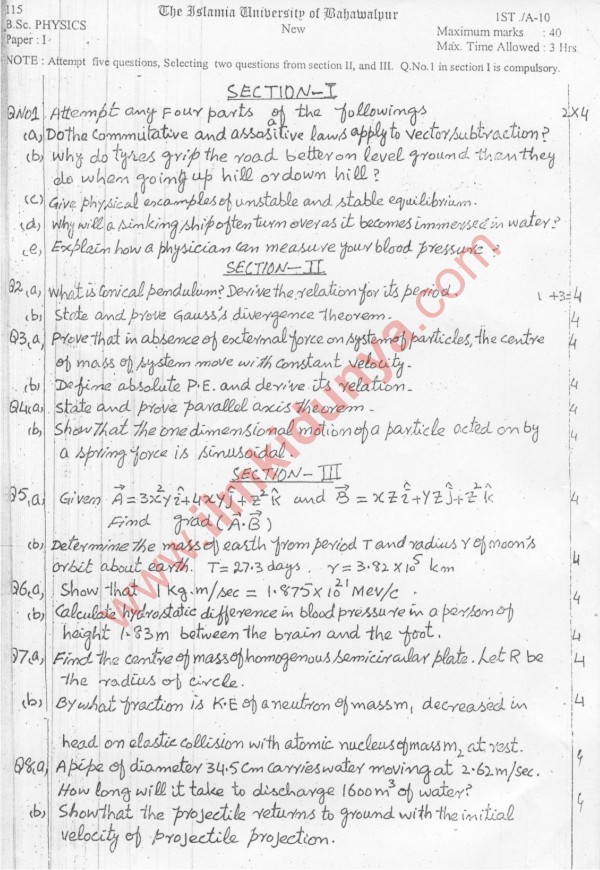 115 The Islamia University of Bahawalpur 1ST./A-10
B.Sc. PHYSICS New Maximum marks : 40
Paper : I Max. Time Allowed : 3 Hrs
NOTE : Attempt five questions, Selecting two questions from section II, and III. Q.No.1 in section I is compulsory.
SECTION-I
QNo1. Attempt any Four parts of the followings 2X4
(a) Do the Commutative and assositive laws apply to vector subtraction?
(b) Why do tyres grip the road better on level ground than they
do when going up hill or down hill?
(c) Give physical examples of unstable and stable equilibrium.
(d) Why will a sinking ship often turn over as it becomes immersed in water?
(e) Explain how a physician can measure your blood pressure.
SECTION-II
Q2.(a) What is Conical pendulum? Derive the relation for its period. 1+3=4
(b) State and prove Gauss's divergence theorem. 4
Q3(a) Prove that in absence of external force on system of particles, the centre 4
of mass of system move with constant velocity.
(b) Define absolute P.E. and derive its relation. 4
Q4(a) State and prove parallel axis theorem. 4
(b) Show that the one dimensional motion of a particle acted on by 4
a spring force is sinusoidal.
SECTION-III
Q5.(a) Given A⃗=3x²yî+4xyĵ+z²k̂ and B⃗=xzî+yzĵ+z²k̂ 4
Find grad(A⃗.B⃗)
(b) Determine the mass of earth from period T and radius r of moon's
orbit about earth. T=27.3 days. r=3.82×10⁵ km 4
Q6(a) Show that 1 kg.m/sec = 1.875×10²¹ Mev/c. 4
(b) Calculate hydrostatic difference in blood pressure in a person of
height 1.83m between the brain and the foot. 4
Q7(a) Find the centre of mass of homogenous semicircular plate. Let R be 4
the radius of circle.
(b) By what fraction is K.E of a neutron of mass m₁ decreased in 4
head on elastic collision with atomic nucleus of mass m₂ at rest.
Q8(a) A pipe of diameter 34.5cm carries water moving at 2.62m/sec. 4
How long will it take to discharge 1600m³ of water?
(b) Show that the projectile returns to ground with the initial 4
velocity of projectile projection.
www.ilmkidunya.com